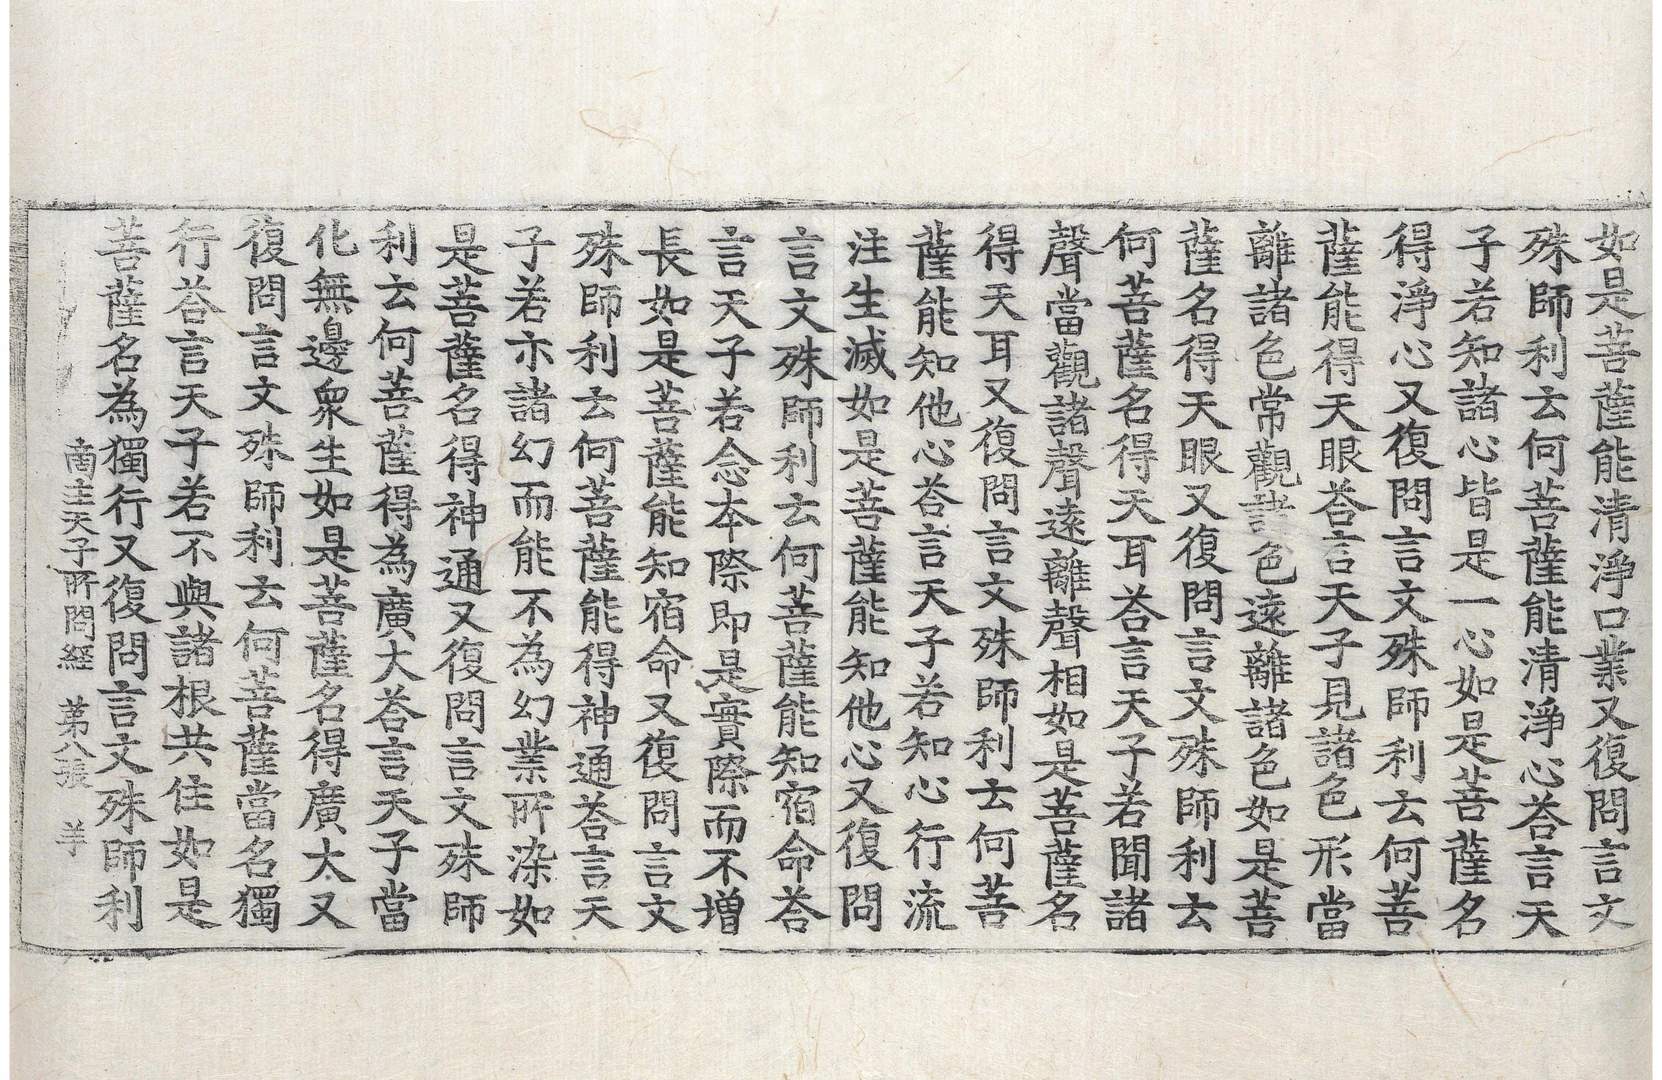 如是菩薩能清淨口業又復問言文
殊師利云何菩薩能清淨心荅言天
子若知諸心皆是一心如是菩薩名
得淨心又復問言文殊師利云何菩
薩能得天眼荅言天子見諸色形當
離諸色常觀諸色遠離諸色如是菩
薩名得天眼又復問言文殊師利云
何菩薩名得天耳荅言天子若聞諸
聲當觀諸聲遠離聲相如是菩薩名
得天耳又復問言文殊師利云何菩
薩能知他心荅言天子若知心行流
注生滅如是菩薩能知他心又復問
言文殊師利云何菩薩能知宿命荅
言天子若念本際即是實際而不增
長如是菩薩能知宿命又復問言文
殊師利云何菩薩能得神通荅言天
子若示諸幻而能不為幻業所染如
是菩薩名得神通又復問言文殊師
利云何菩薩得為廣大荅言天子當
化無邊衆生如是菩薩名得廣大又
復問言文殊師利云何菩薩當名獨
行荅言天子若不與諸根共住如是
菩薩名為獨行又復問言文殊師利
商主天子所問経 第八張 羊